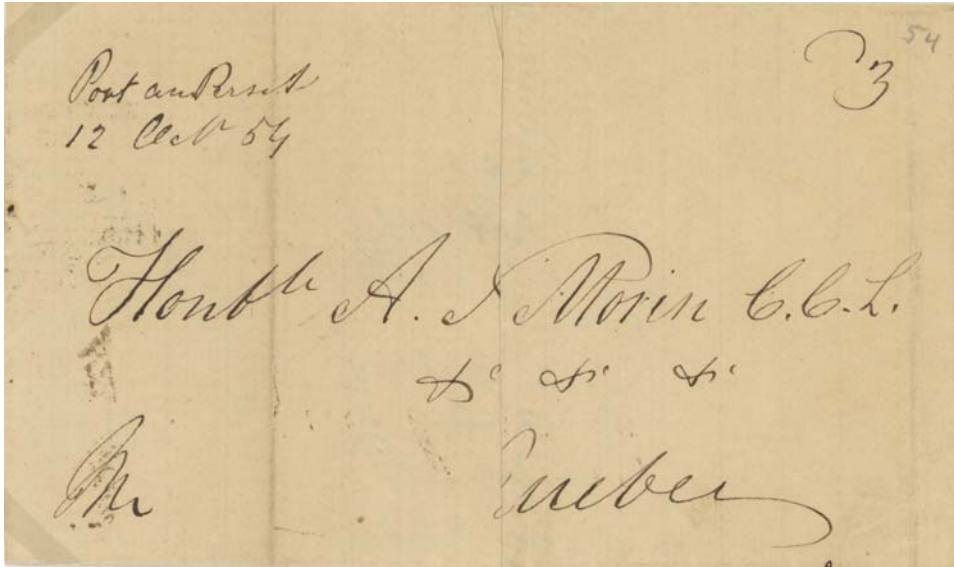 54
3
Port au Persil
12 Oct 54
Honble A. N Morin C.C.L.
&c &c &c
Quebec